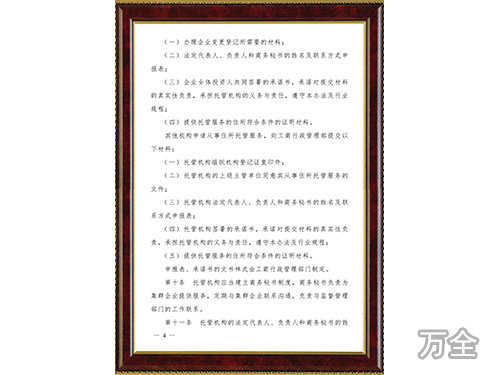 （一）办理企业变更登记所需要的材料；
（二）法定代表人、负责人和商务秘书的姓名及联系方式申
报表；
（三）企业全体投资人共同签署的承诺书，承诺对提交材料
的真实性负责，承担托管机构的义务与责任，遵守本办法及行业
规程；
（四）提供托管服务的住所符合条件的证明材料。
其他机构申请从事住所托管服务，向工商行政管理部提交以
下材料：
（一）托管机构组织机构登记证复印件；
（二）托管机构的上级主管单位同意其从事住所托管服务的
文件；
（三）托管机构法定代表人、负责人和商务秘书的姓名及联
系方式申报表；
（四）托管机构签署的承诺书，承诺对提交材料的真实性负
责，承担托管机构的义务与责任，遵守本办法及行业规程；
（五）提供托管服务的住所符合条件的证明材料。
申报表、承诺书的文书样式由工商行政管理部门制定。
第十条 托管机构应当建立商务秘书制度，商务秘书负责为
集群企业提供服务，定期与集群企业联系沟通，负责与监督管理
部门的工作联系。
第十一条 托管机构的法定代表人、负责人和商务秘书的姓
— 4 —
万全